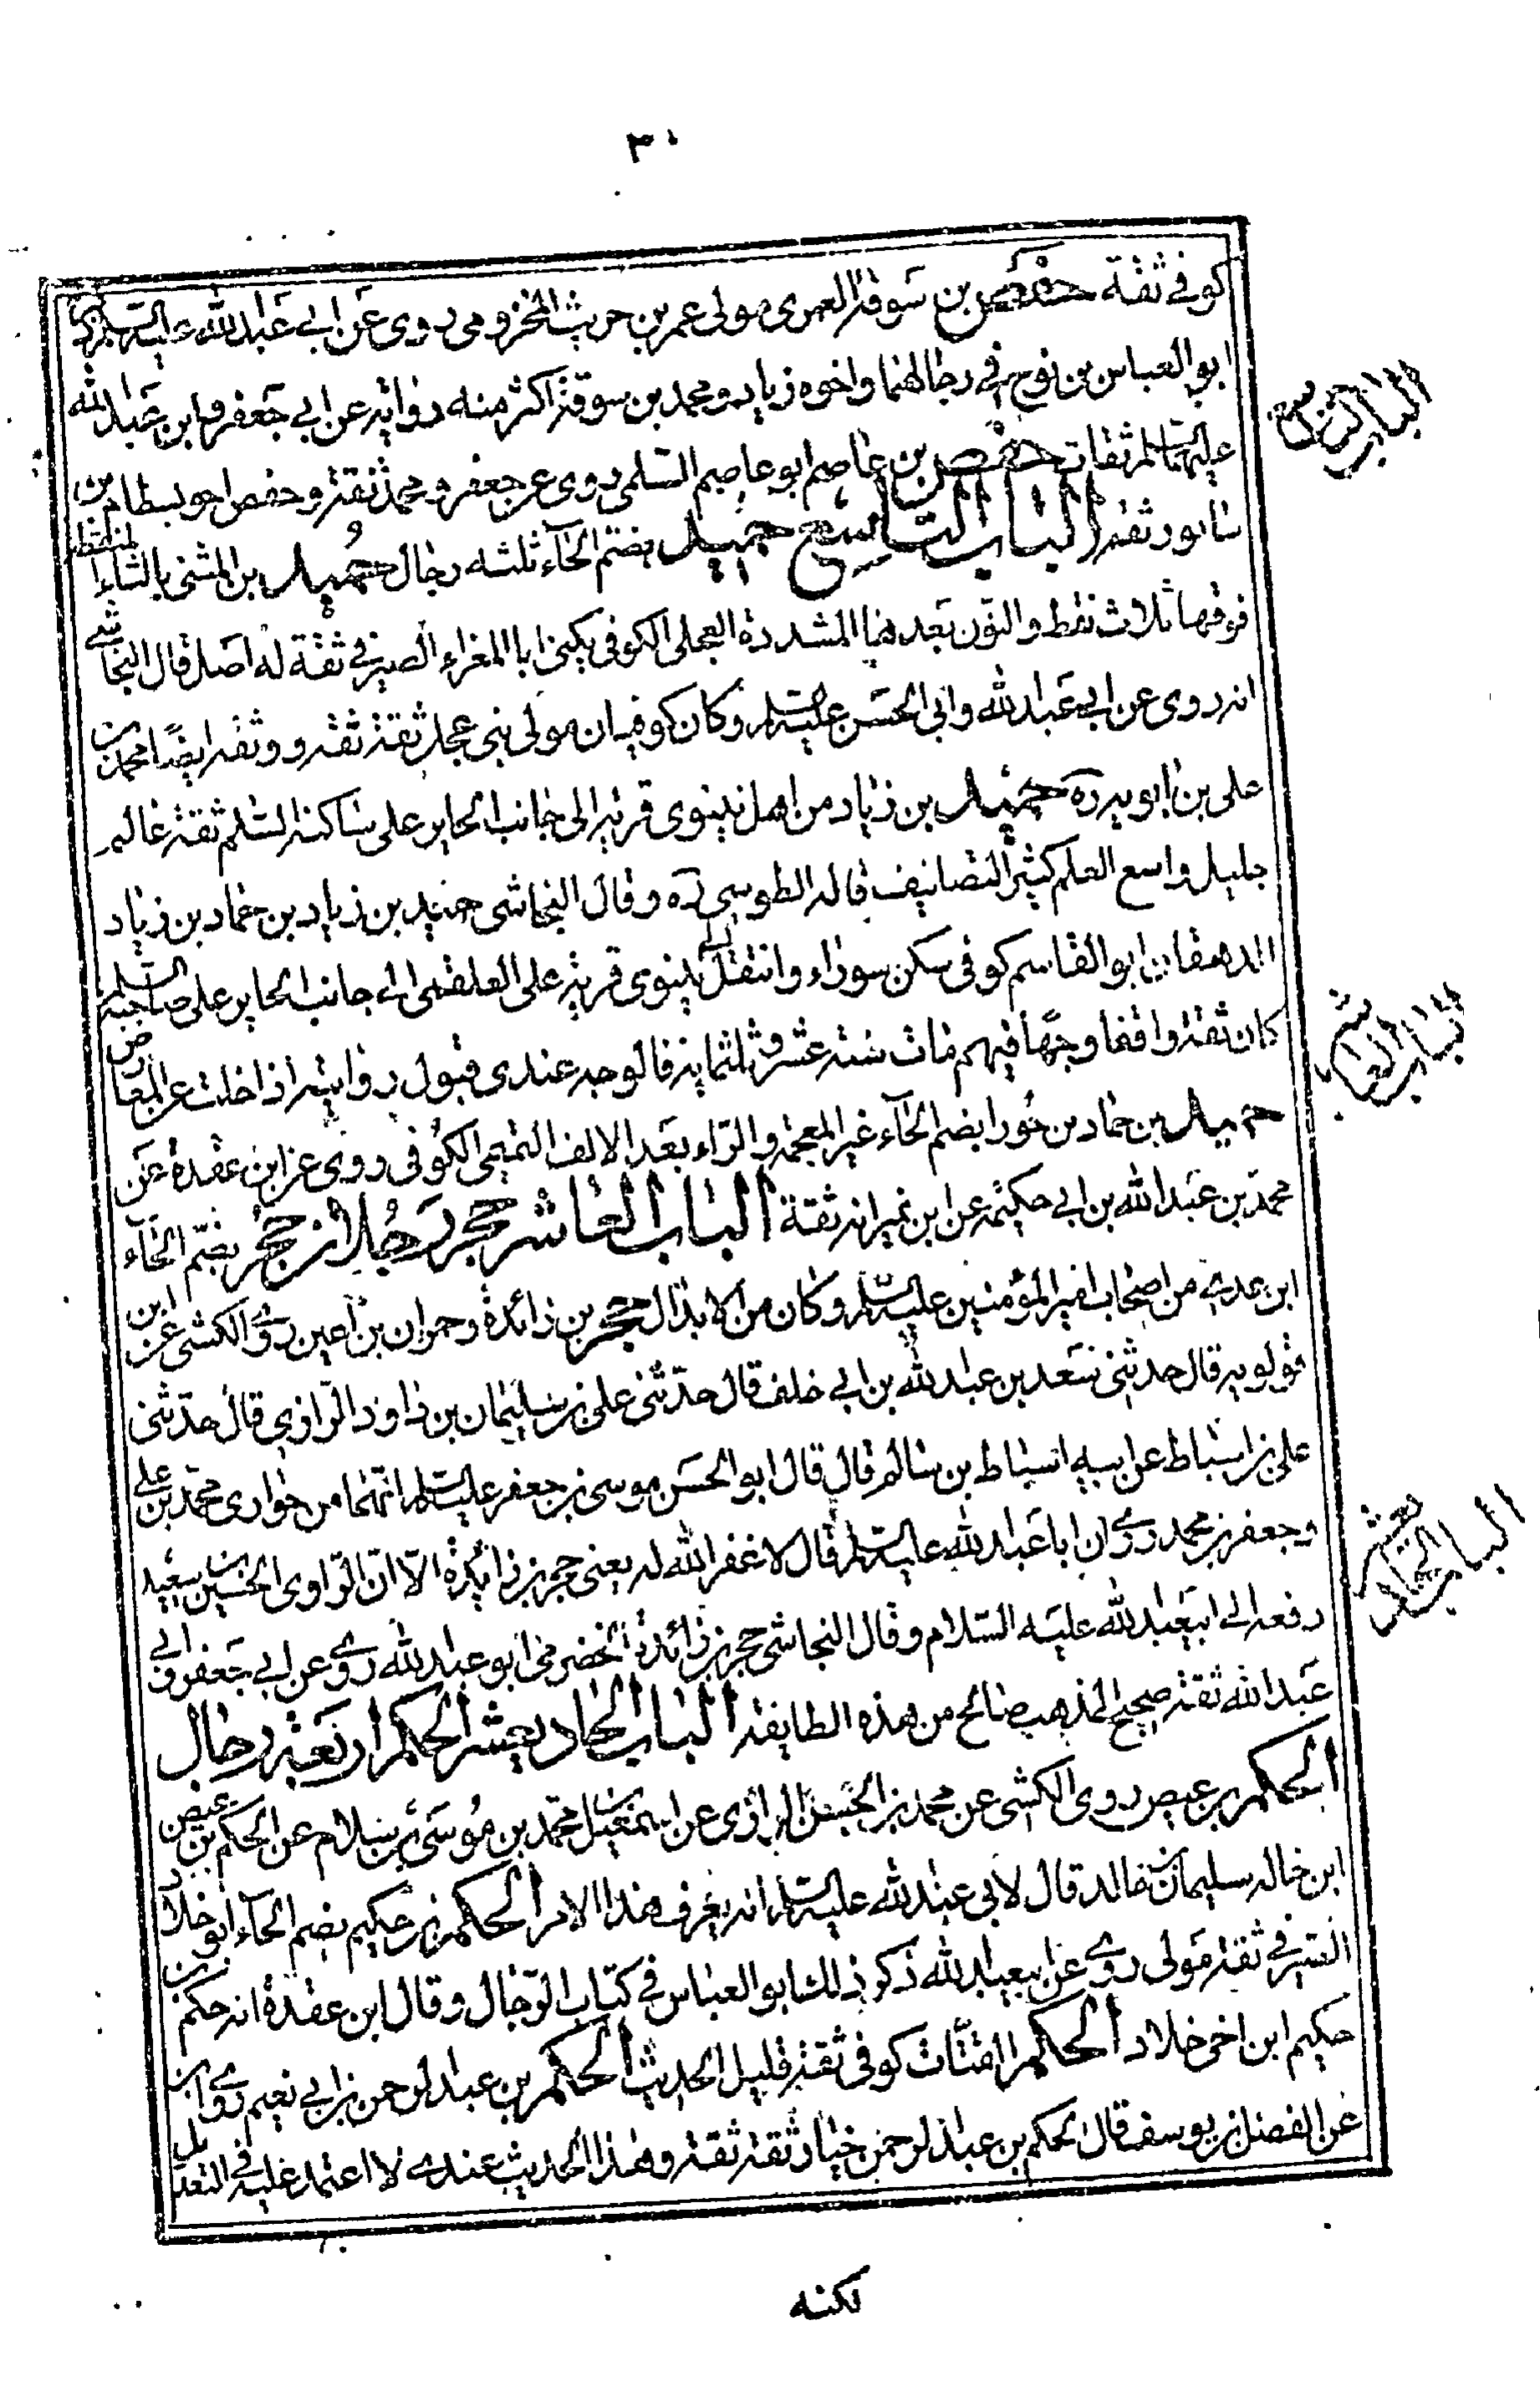 ٣٠
كوفي ثقة حفص بن سوقة العمرى مولى عمرو بن حريث المخزومى روى عن ابي عبد الله عليه السلم ذكره
ابو العباس بن نوح في رجالهما واخوه زياد ومحمد بن سوقة اكثر منه رواية عن ابي جعفر وابي عبد الله
عليهما السلم ثقات حفص بن عاصم ابو عاصم السلمى روى عن جعفر بن محمد ثقة وحفص اخو بسطام بن
سابور ثقة الباب التاسع حميد بضم الحاء ثلثه رجال حميد بن المثنى بالثاء المنقطة
فوقها ثلاث نقط والنون بعدها المشددة العجلى الكوفى يكنى ابا المغراء الصيرفي ثقة له اصل قال النجاشي
انه روى عن ابي عبد الله وابي الحسن عليهما السلم وكان كوفيا مولى بنى عجل ثقة ثقة ووثقه ايضا محمد بن
على بن بابويه ره حميد بن زياد من اهل نينوى قرية الى جانب الحاير على ساكنه السلم ثقة عالم
جليل واسع العلم كثير التصانيف قاله الطوسى ره وقال النجاشى حميد بن زياد بن حماد بن زياد
الدهقان ابو القاسم كوفى سكن سوراء وانتقل الى نينوى قرية على العلقمى الى جانب الحاير على صاحبه السلم
كان ثقة واقفا وجها فيهم مات سنة عشر وثلثماية فالوجه عندى قبول روايته اذا خلت عن المعارض
حميد بن حماد بن خوار بضم الحاء غير المعجمة والراء بعد الالف التميمى الكوفى روى عن ابن عقدة عن
محمد بن عبد الله بن ابي حكيمة عن ابن نمير انه ثقة الباب العاشر حجر رجلان حجر بضم الحاء
ابن عدى من اصحاب امير المؤمنين عليه السلم وكان من الابدال حجر بن زائدة وحمران بن اعين روى الكشى عن ابن
قولويه قال حدثنى سعد بن عبد الله بن ابي خلف قال حدثنى على بن سليمان بن داود الرازى قال حدثنى
على بن اسباط عن ابيه اسباط بن سالم قال قال ابو الحسن موسى بن جعفر عليه السلم انهما من حوارى محمد بن على
وجعفر بن محمد وروى ان ابا عبد الله عليه السلم قال لا غفر الله له يعنى حجر بن زايدة الا ان الراوى الحسين بن سعيد
رفعه الى ابي عبد الله عليه السلام وقال النجاشى حجر بن زائدة الحضرمى ابو عبد الله روى عن ابي جعفر وابي
عبد الله ثقة صحيح المذهب صالح من هذه الطايفة الباب الحاديعشر الحكم اربعة رجال
الحكم بن عيص روى الكشى عن محمد بن الحسن البراثى عن اسمعيل بن محمد بن موسى بن سلام عن الحكم بن عيص
ابن خاله سليمان بن خالد قال لابي عبد الله عليه السلم انه يعرف هذا الامر الحكم بن حكيم بضم الحاء ابو خلاد
الصيرفي ثقة مولى روى عن ابي عبد الله ذكر ذلك ابو العباس في كتاب الرجال وقال ابن عقدة انه حكم بن
حكيم ابن اخى خلاد الحكم القتات كوفى ثقة قليل الحديث الحكم بن عبد الرحمن بن ابي نعيم روى ابن
عن الفضل بن يوسف قال الحكم بن عبد الرحمن خيار ثقة ثقة وهذا الحديث عندى لا اعتمد عليه في التعديل
لكنه
الباب التاسع
الباب العاشر
الباب الحاديعشر